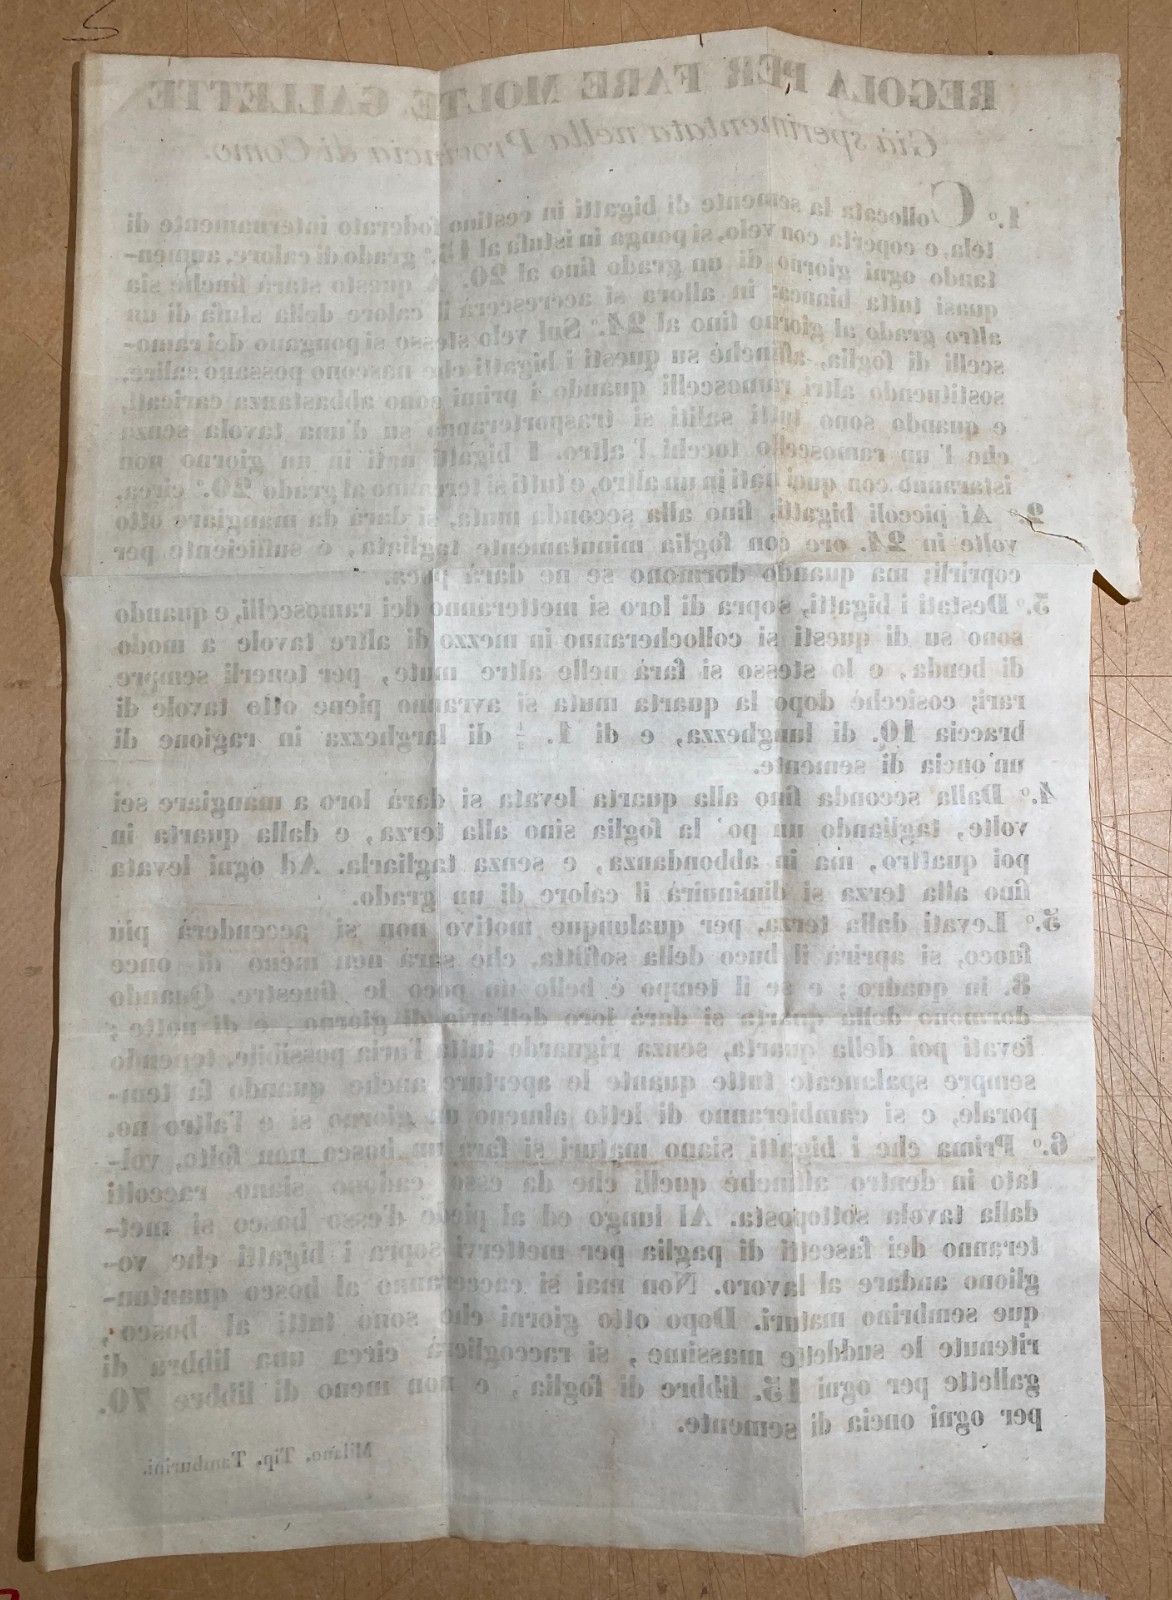 REGOLA PER FARE MOLTE GALLETTE
Già sperimentata nella Provincia di Como.
1.° Collocata la semente di bigatti in cestino foderato internamente di
tela, e coperta con velo, si ponga in istufa al 15.° grado di calore, aumen-
tando ogni giorno di un grado fino al 20. A questo starà finchè sia
quasi tutta bianca; in allora si accrescerà il calore della stufa di un
altro grado al giorno fino al 24.° Sul velo stesso si pongano dei ramo-
scelli di foglia, affinchè su questi i bigatti che nascono possano salire,
sostituendo altri ramoscelli quando i primi sono abbastanza caricati,
e quando sono tutti saliti si trasporteranno su d'una tavola senza
che l'un ramoscello tocchi l'altro. I bigatti nati in un giorno non
istaranno con quei nati in un altro, e tutti si terranno al grado 20.° circa.
2.° Ai piccoli bigatti, fino alla seconda muta, si darà da mangiare otto
volte in 24. ore con foglia minutamente tagliata, è sufficiente per
coprirli; ma quando dormono se ne darà poca.
3.° Destati i bigatti, sopra di loro si metteranno dei ramoscelli, e quando
sono su di questi si collocheranno in mezzo di altre tavole a modo
di benda, e lo stesso si farà nelle altre mute, per tenerli sempre
rari; cosicchè dopo la quarta muta si avranno piene otto tavole di
braccia 10. di lunghezza, e di 1. 1/2 di larghezza in ragione di
un'oncia di semente.
4.° Dalla seconda fino alla quarta levata si darà loro a mangiare sei
volte, tagliando un po' la foglia sino alla terza, e dalla quarta in
poi quattro, ma in abbondanza, e senza tagliarla. Ad ogni levata
fino alla terza si diminuirà il calore di un grado.
5.° Levati dalla terza, per qualunque motivo non si accenderà più
fuoco, si aprirà il buco della soffitta, che sarà non meno di once
8. in quadro; e se il tempo è bello un poco le finestre. Quando
dormono della quarta si darà loro dell'aria di giorno, e di notte;
levati poi della quarta, senza riguardo tutta l'aria possibile, tenendo
sempre spalancate tutte quante le aperture anche quando fa tem-
porale, e si cambieranno di letto almeno un giorno si e l'altro no.
6.° Prima che i bigatti siano maturi si farà un bosco non folto, vol-
tato in dentro affinchè quelli che da esso cadono siano raccolti
dalla tavola sottoposta. Al lungo ed al piede d'esso bosco si met-
teranno dei fascetti di paglia per mettervi sopra i bigatti che vo-
gliono andare al lavoro. Non mai si cacceranno al bosco quantun-
que sembrino maturi. Dopo otto giorni che sono tutti al bosco,
ritenute le suddette massime, si raccoglierà circa una libbra di
gallette per ogni 15. libbre di foglia, e non meno di libbre 70.
per ogni oncia di semente.
Milano, Tip. Tamburini.